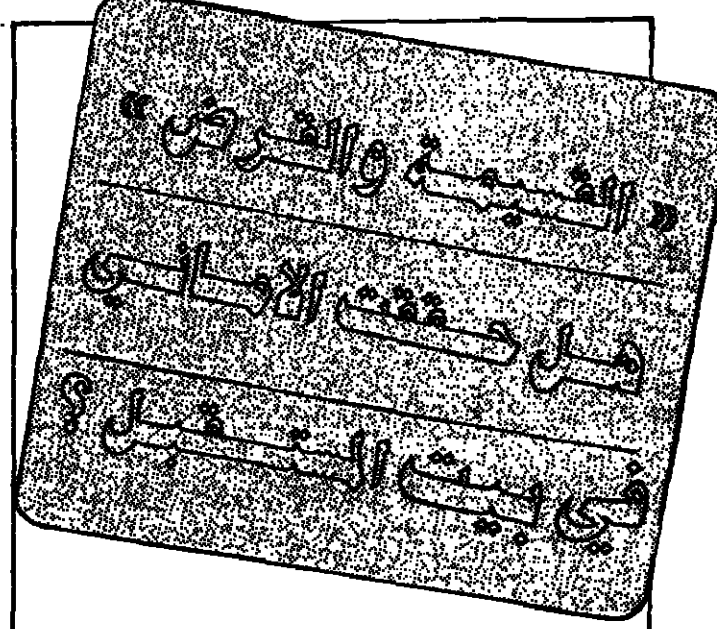 « القسيمة والقرض »
هل حققت الأماني
في بيت المستقبل ؟